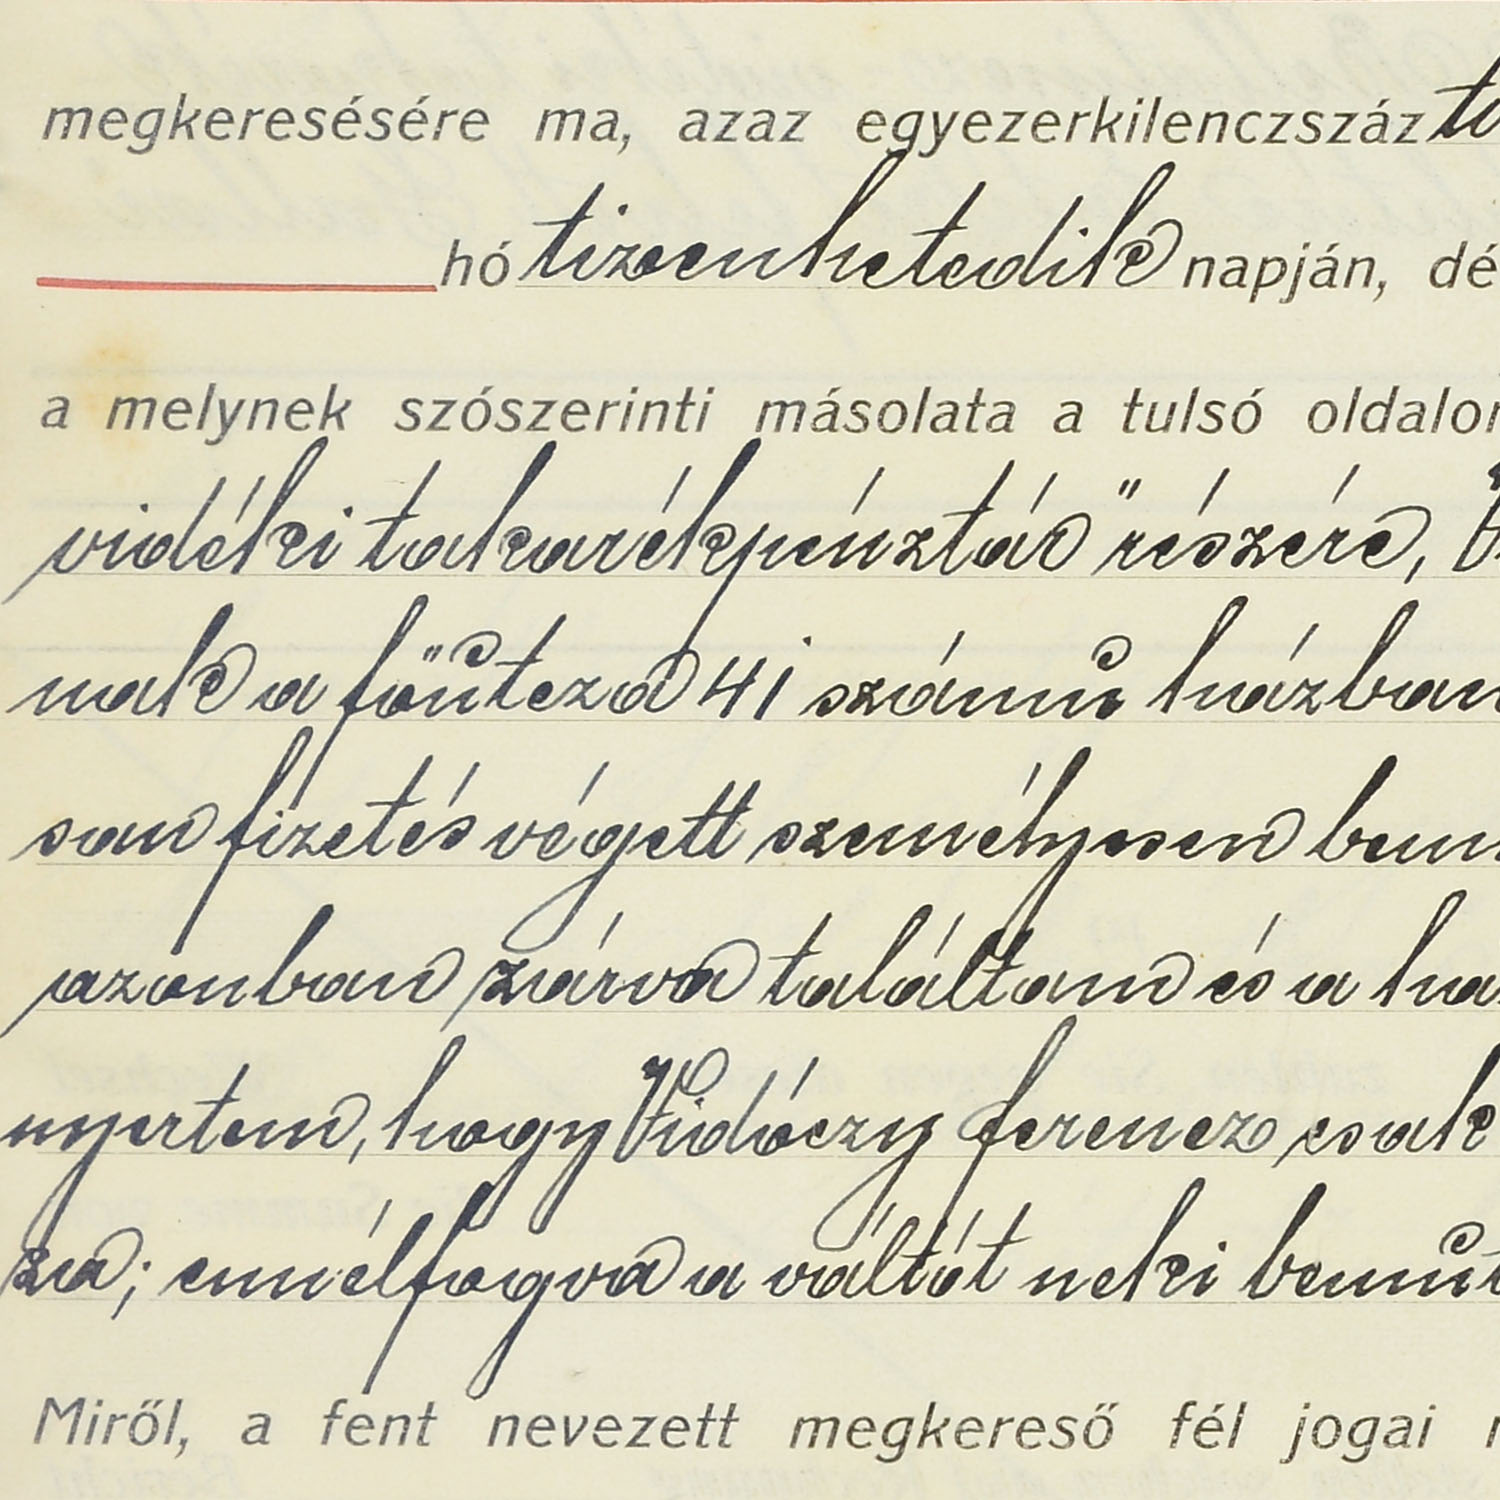 megkeresésére ma, azaz egyezerkilenczszáz
hó tizenhetedik napján, dé
a melynek szószerinti másolata a tulsó oldalon
vidéki takarékpénztár" részére,
nak a főuteza 41 számu házban
san fizetés végett személyesen
azonban zárva találtam és a
nyertem, hogy Vidóczy Ferencz csak
za; ennélfogva a váltót neki
Miről, a fent nevezett megkereső fél jogai